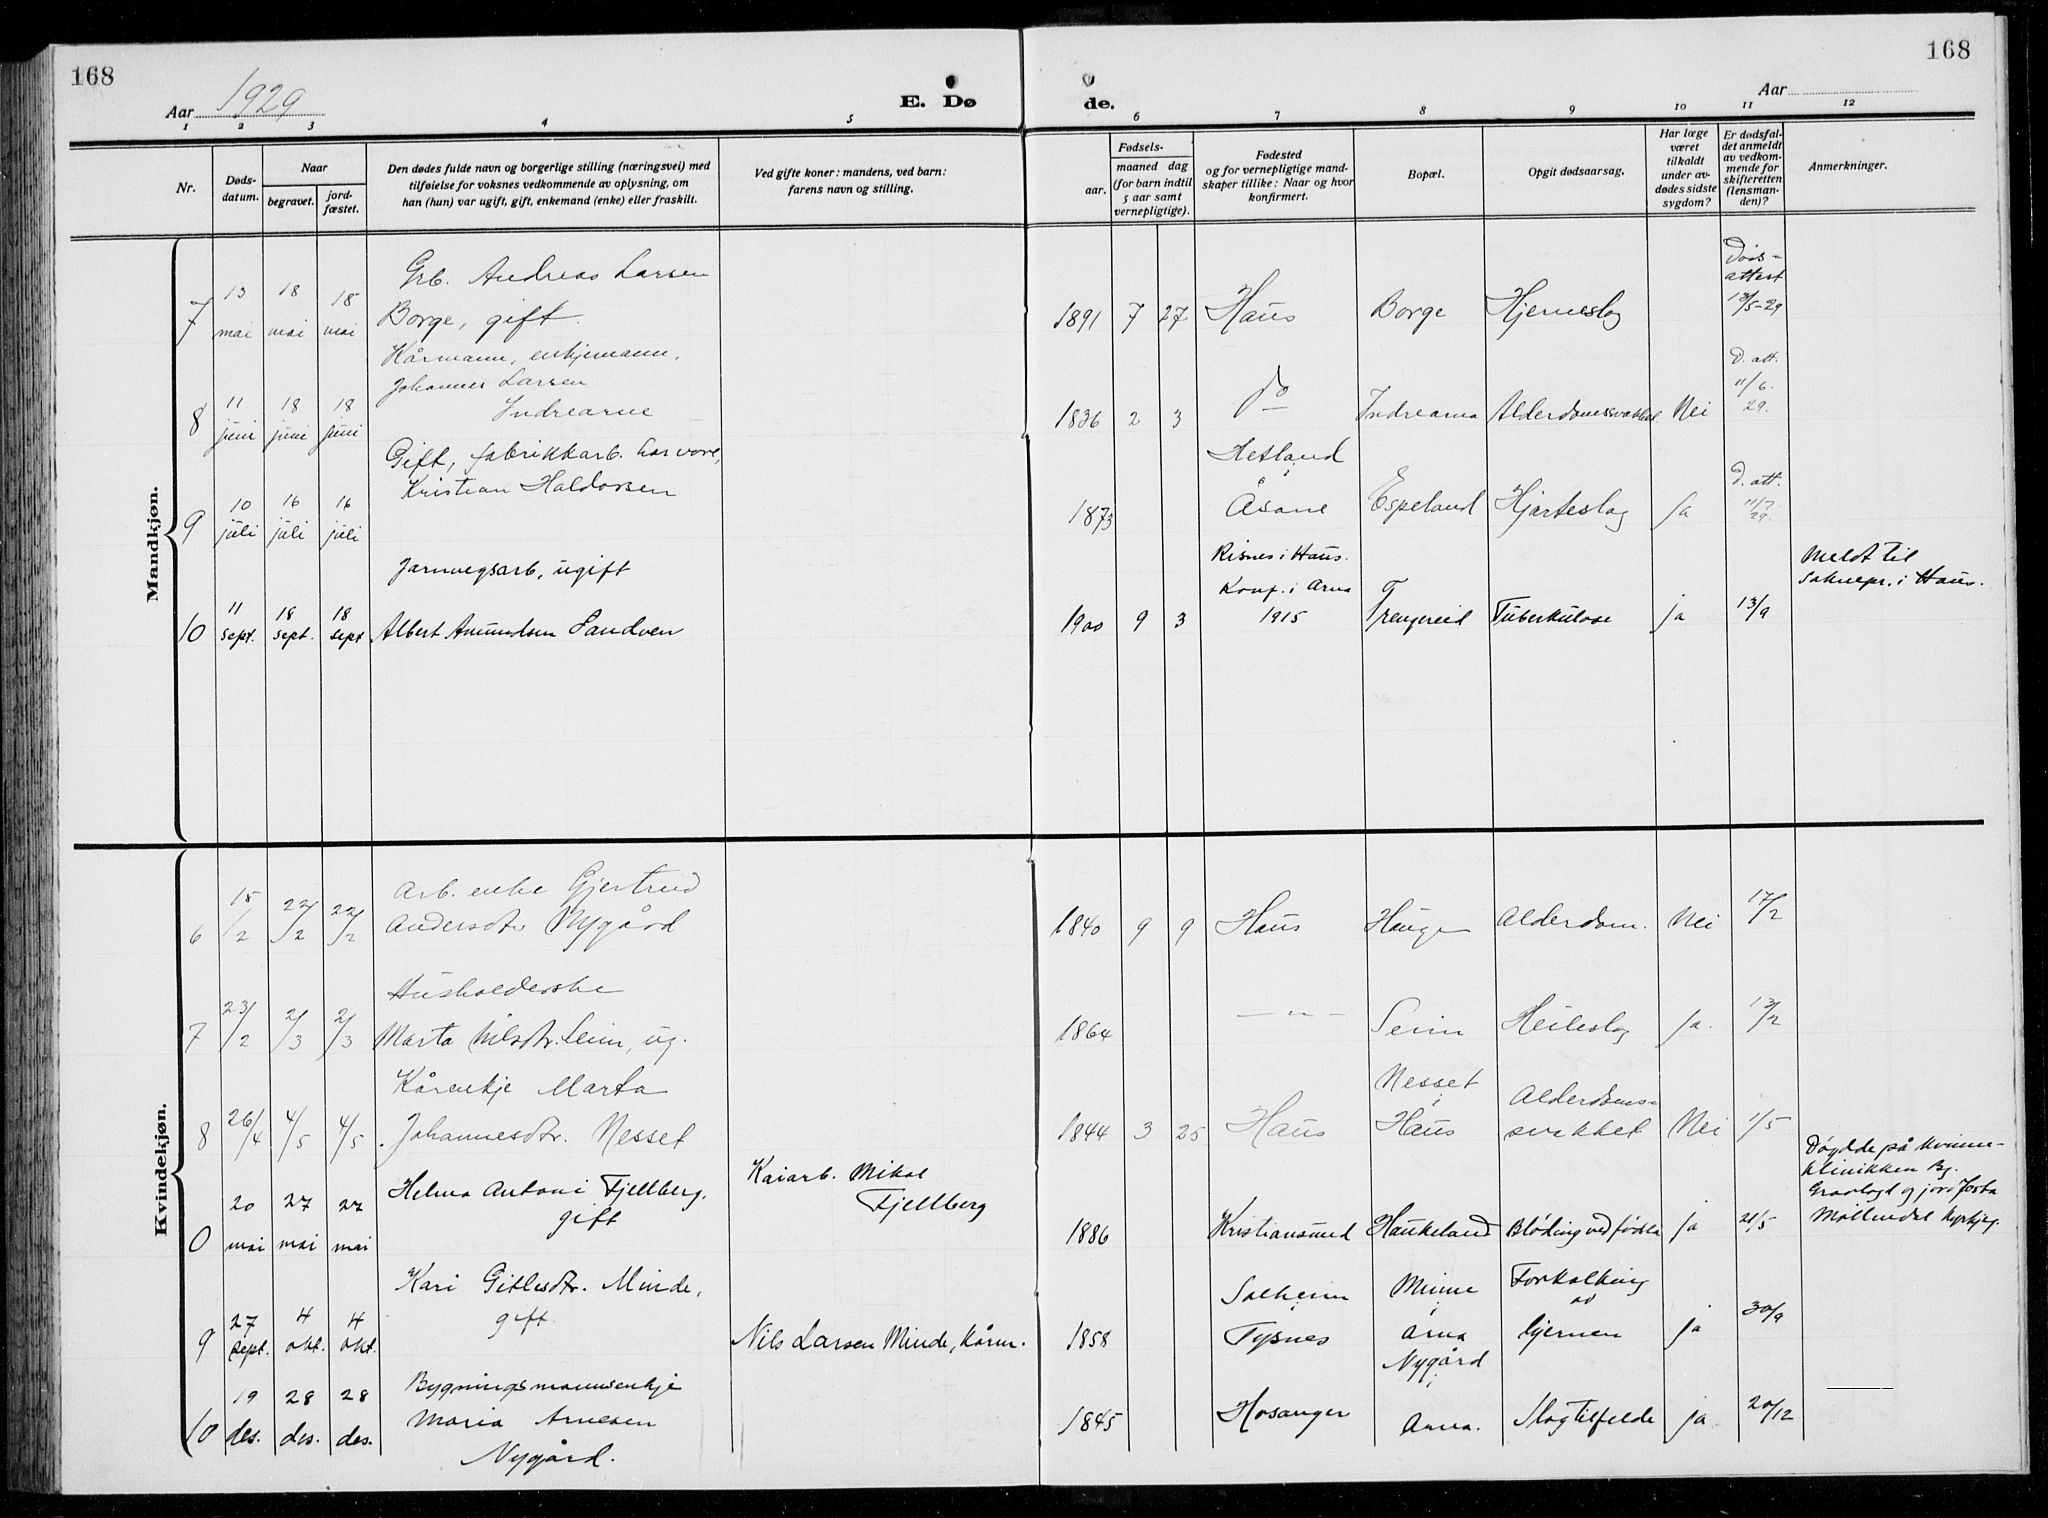 168
168
Aar 1929
E. Dø
de.
Aar
1 2 3 4 5 6 7 8 9 10 11 12
Nr.
Døds-
datum.
Naar
begravet.
jord-
fæstet.
Den dødes fulde navn og borgerlige stilling (næringsvei) med
tilføielse for voksnes vedkommende av oplysning, om
han (hun) var ugift, gift, enkemand (enke) eller fraskilt.
Ved gifte koner: mandens, ved barn:
farens navn og stilling.
Fødsels-
aar.
maaned dag
(for barn indtil
5 aar samt
vernepligtige).
Fødested
og for vernepligtige mand-
skaper tillike: Naar og hvor
konfirmert.
Bopæl.
Opgit dødsaarsag.
Har læge
været
tilkaldt
under av-
dødes sidste
sygdom?
Er dødsfal-
det anmeldt
av vedkom-
mende for
skifteretten
(lensman-
den)?
Anmerkninger.
Mandkjøn.
Grb. Andreas Larsen
7 13 mai 18 mai 18 mai Borge, gift. 1891 7 27 Haus Borge Hjerneslag Døds-
attest
13/5-29
Kårmann, enkjemann,
Johannes Larsen
8 11 juni 18 juni 18 juni Indrearne 1836 2 3 do Indrearna Alderdomssvakhet Nei D. att.
11/6
29.
Gift, fabrikkarb. har vore,
Kristian Haldorsen
9 10 juli 16 juli 16 juli 1873 Hetland
i
Åsane Espeland Hjarteslag Ja D. att.
11/7
29.
Jarnvegsarb, ugift
10 11 sept. 18 sept. 18 sept Albert Amundsen Sandven 1900 9 3 Risnes i Haus.
Konf. i Arna
1915 Trengereid Tuberkulose ja 13/9 Meldt til
soknepr. i Haus.
Kvindekjøn.
Arb. enke Gjertrud
6 15/2 22/2 22/2 Andersdtr Nygård 1840 9 9 Haus Hauge Alderdom. Nei 17/2
Husholderske
7 23/2 2/3 2/3 Marta Nilsdtr. Seim, ug. 1864 — " — Seim Heileslag Ja.
Kårenkje Marta
8 26/4 4/5 4/5 Johannesdtr. Nesset 1844 3 25 Haus Nesset
i
Haus Alderdoms-
svakhet Nei 1/5
0 20 mai 27 mai 27 mai Helma Antoni Fjellberg,
gift Kaiarb. Mikal
Fjellberg 1886 Kristiansund Haukeland Bløding ved fødsla ja 21/5 Døydde på Kvinne-
klinikken Bg.
Gravlagt og jordfesta
Møllendal kyrkjeg.
9 27 sept. 4 okt. 4 okt. Kari Gitlesdtr. Minde,
gift. Nils Larsen Minde, kårm. 1858 Solheim
i
Tysnes Minne
i
Arna Forkalking
av
hjernen ja 30/9
10 19 des. 28 des. 28 des. Bygningsmannsenkje
Maria Arnesen
Nygård. 1845 Hosanger Nygård
i
Arna. Slagtilfelde ja 20/12